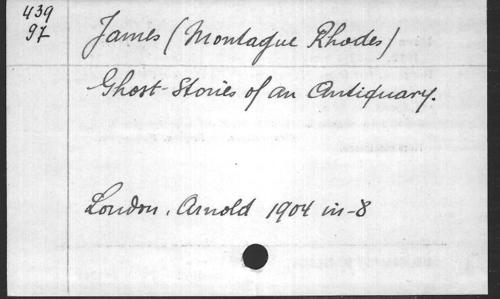 439
97
James (Montague Rhodes)
Ghost-Stories of an Antiquary.
London, Arnold 1904 in-8